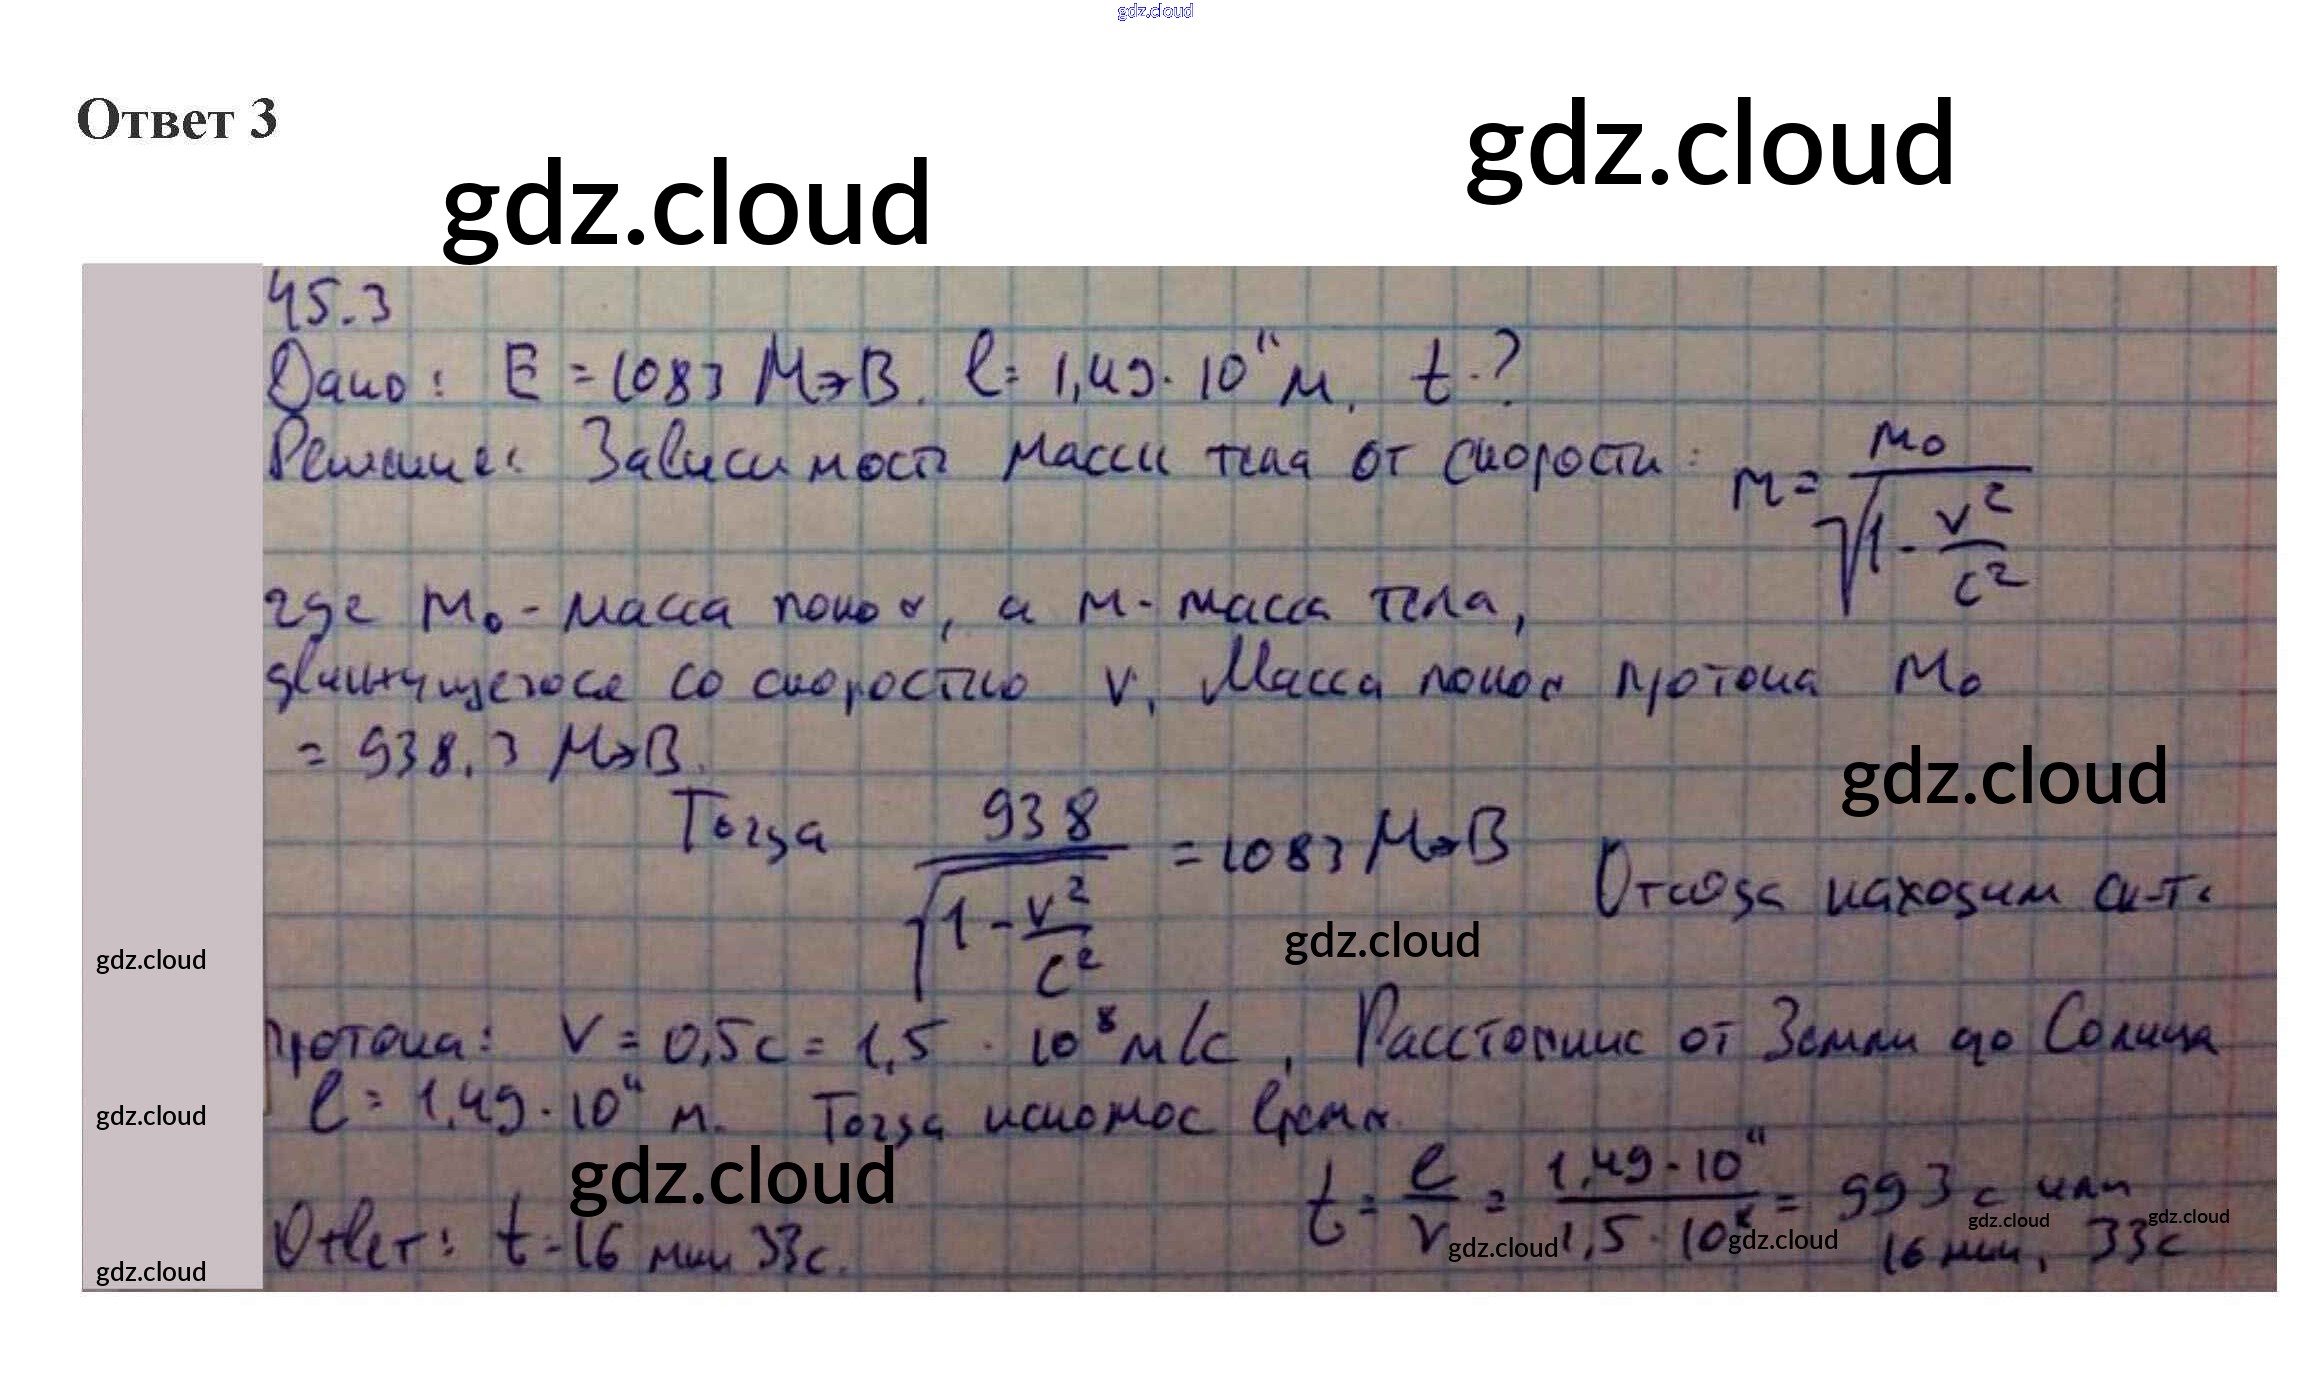 gdz.cloud
Ответ 3
gdz.cloud
gdz.cloud
45.3
Дано: E = 1083 МэВ. l = 1,49 · 10¹¹ м. t - ?
Решение: Зависимость массы тела от скорости: m = m₀ / √(1 - v²/c²)
где m₀ - масса покоя, а m - масса тела,
движущегося со скоростью v. Масса покоя протона m₀
= 938.3 МэВ.
gdz.cloud
Тогда 938 / √(1 - v²/c²) = 1083 МэВ Отсюда находим ск-ть
gdz.cloud
gdz.cloud
протона: v = 0,5c = 1,5 · 10⁸ м/с, Расстояние от Земли до Солнца
l = 1,49 · 10¹¹ м. Тогда искомое время
gdz.cloud
gdz.cloud
t = l / v = 1,49 · 10¹¹ / 1,5 · 10⁸ = 993 с или
16 мин, 33с
gdz.cloud
gdz.cloud
gdz.cloud
gdz.cloud
Ответ: t = 16 мин 33с.
gdz.cloud